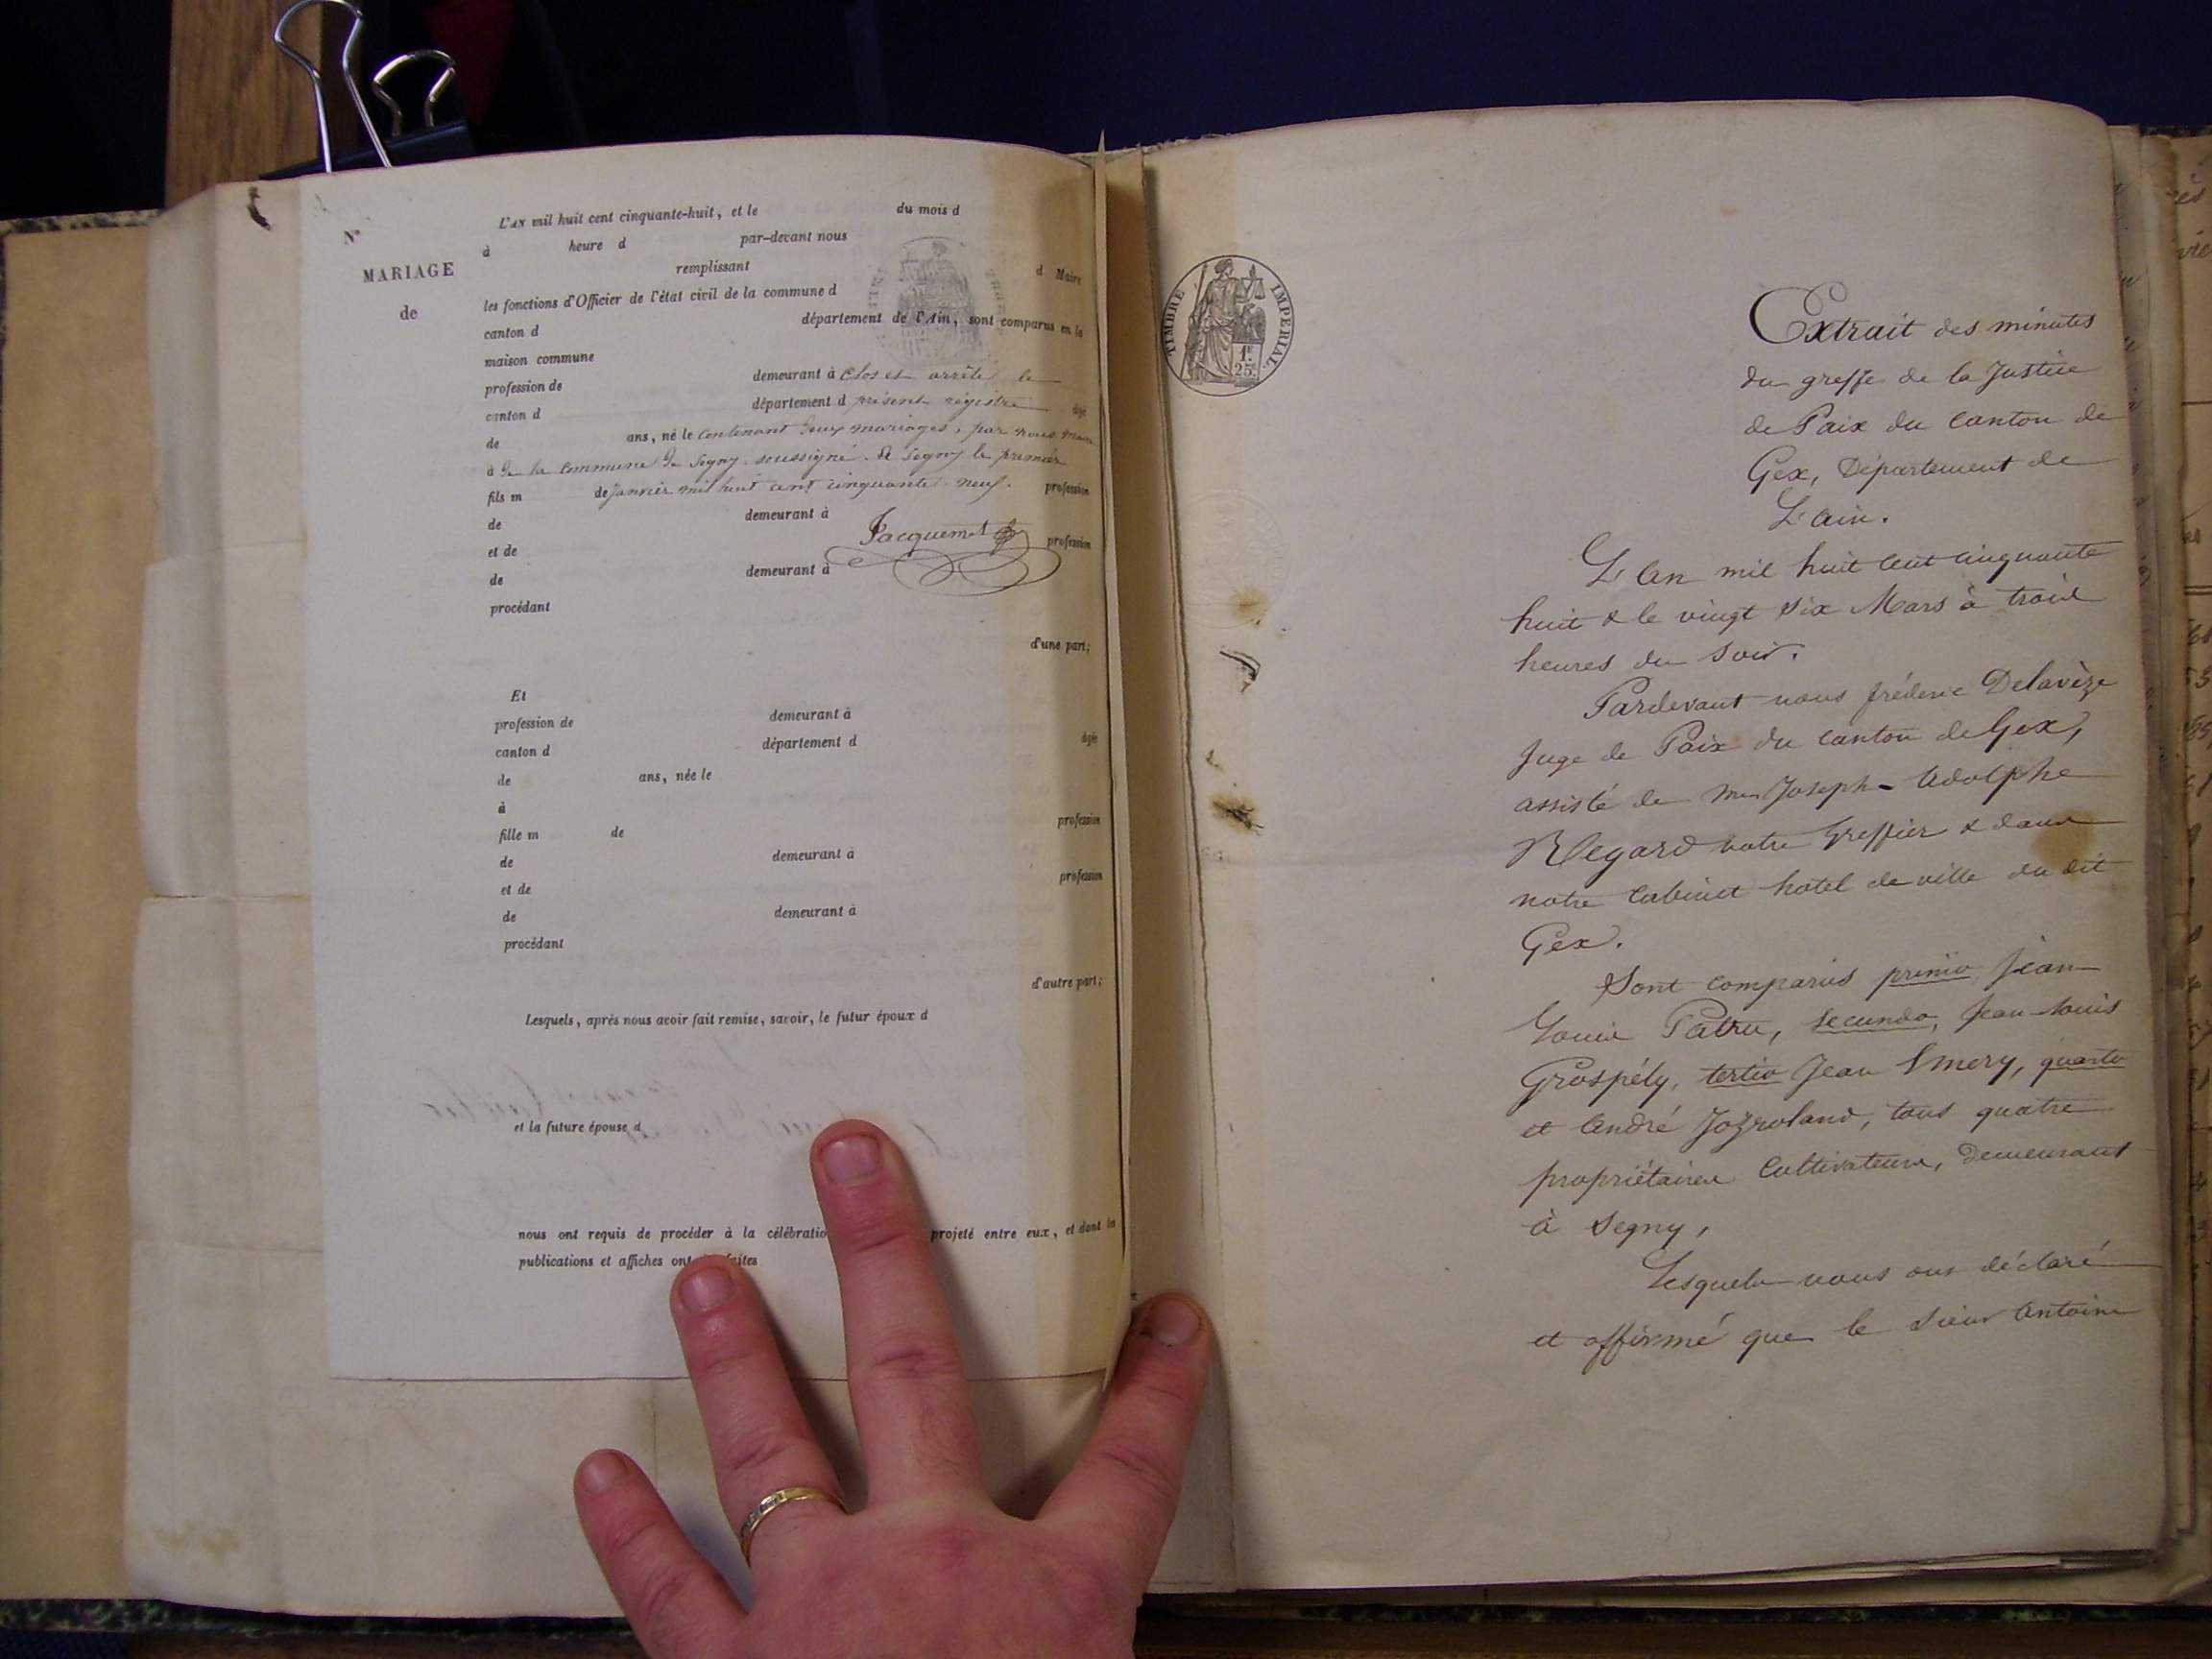 N°
MARIAGE
de
L'AN mil huit cent cinquante-huit, et le du mois d
à heure d par-devant nous
remplissant d Maire
les fonctions d'Officier de l'état civil de la commune d
canton d département de l'Ain, sont comparus en la
maison commune
profession de demeurant à Clos et arrêté le
canton d département d présent régistre âgé
de ans, né le Contenant deux mariages, par nous maire
à de la Commune de Segny soussigné. A Segny le premier
fils m de Janvier mil huit cent cinquante-neuf. profession
de demeurant à
Jacquemet
et de profession
de demeurant à
procédant
d'une part;
Et
profession de demeurant à
canton d département d âgée
de ans, née le
à
fille m de profession
de demeurant à
et de profession
de demeurant à
procédant
d'autre part;
Lesquels, après nous avoir fait remise, savoir, le futur époux d
et la future épouse d
nous ont requis de procéder à la célébration projeté entre eux, et dont les
publications et affiches ont faites
TIMBRE IMPERIAL
1F
25c
Extrait des minutes
du greffe de la Justice
de Paix du Canton de
Gex, Département de
L'ain.
L'an mil huit cent cinquante
huit & le vingt six Mars à trois
heures du soir.
Pardevant nous fréderic Delavèze
Juge de Paix du canton de Gex,
assisté de me Joseph-Adolphe
Regard notre Greffier & dans
notre Cabinet hotel de ville du dit
Gex.
Sont comparus primo Jean
Louis Patru, secundo, Jean-Louis
Grospély, tertio Jean Emery, quarto
et André Jozroland, tous quatre
propriétaires Cultivateurs, demeurant
à Segny,
Lesquels nous ont déclaré
et affirmé que le sieur Antoine